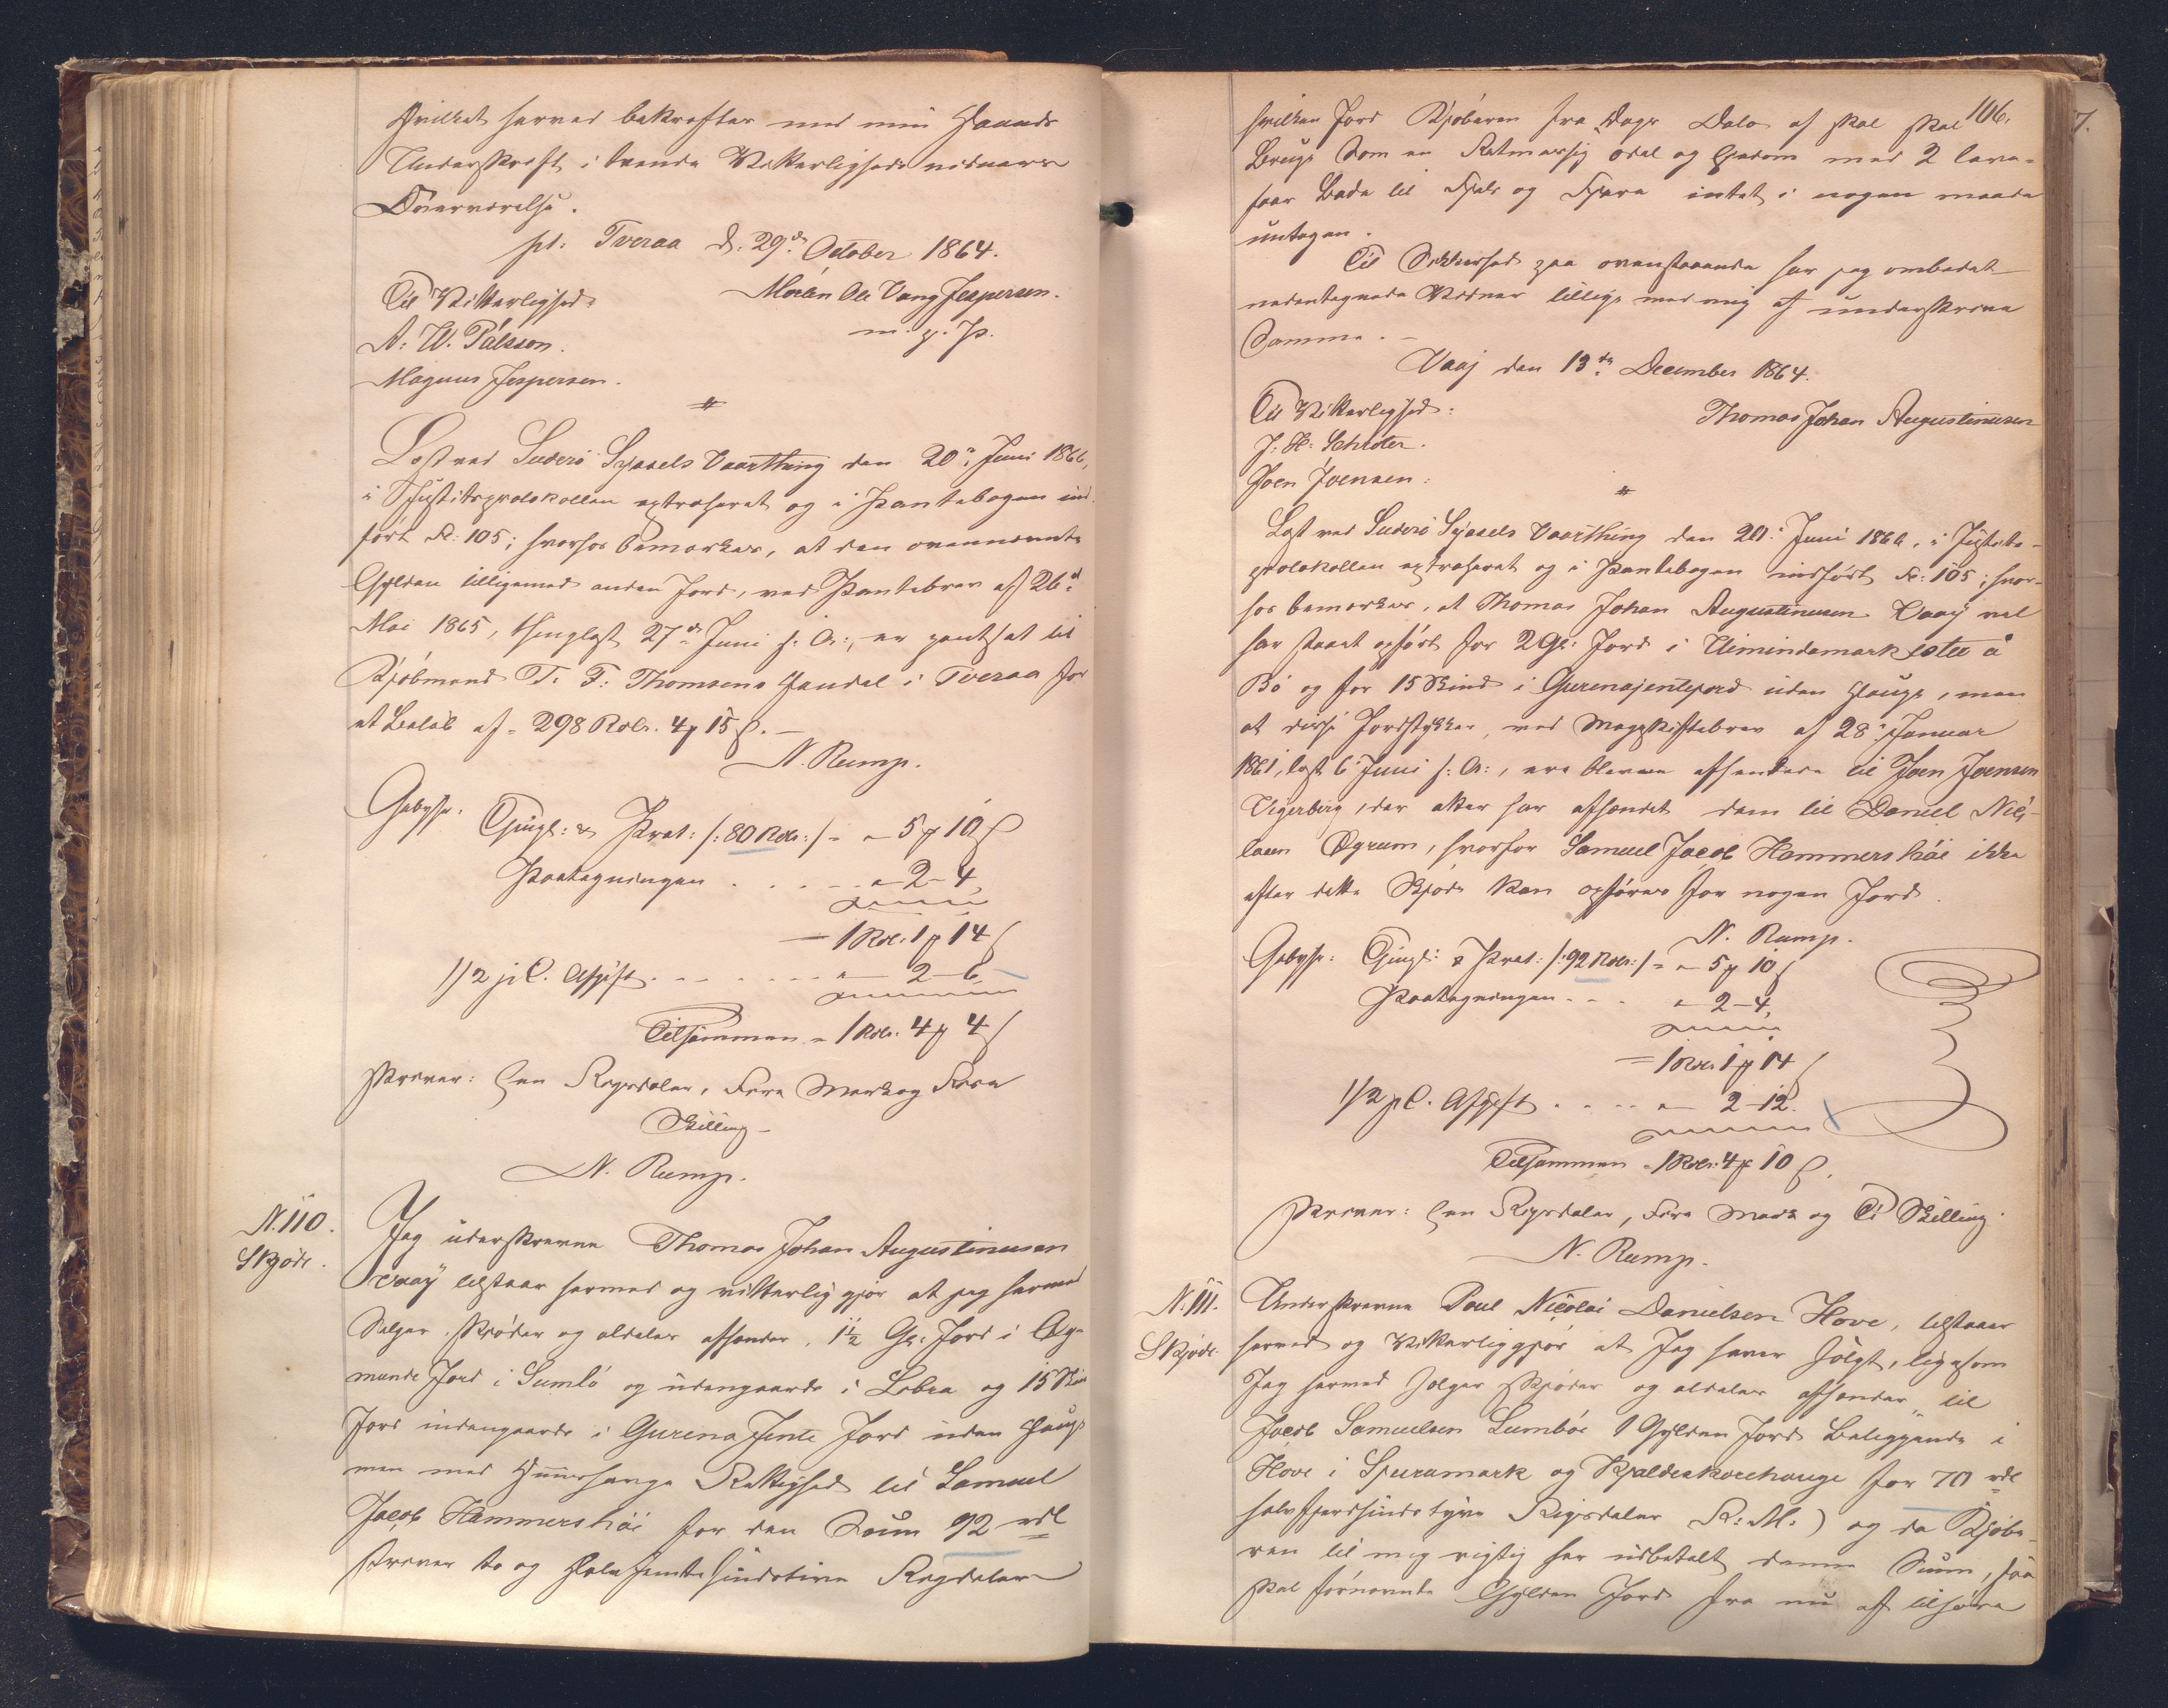 Hvilket herved bekræftes med min Haands
Underskrift i tvende Vitterligheds vidners
Overværelse.
pt: Tveraa d: 29de October 1864.
Til Vitterlighed: Morten Ole Vang Jespersen.
A: W. Pálsson. m. f. P.
Magnus Jespersen.
#
Læst ved Suderö Syssels Vaarthing den 20de Juni 1866,
i Justitsprotokollen extraheret og i Pantebogen ind-
ført Fo: 105; hvorhos bemærkes, at den ovennævnte
Gylden tilligemed anden Jord, ved Pantebrev af 26de
Mai 1865, thinglæst 27de Juni s: A:, er pantsat til
Kjöbmand T. F: Thomsens Handel i Tveraa for
et Belöb af = 298 Rdlr. 4 ₰ 15 ß. —
N. Rump.
Gebyhr: Thingl: & Prot: /: 80 Rdlr: / = " 5 ₰ 10 ß
Paategningen . . . . " 2 - 4,
= 1 Rdl: 1 ₰ 14 ß
1/2 pC. Afgift . . . . . " 2 - 6,
Tilsammen = 1 Rdlr. 4 ₰ 4 ß
skriver: Een Rigsdaler, Fire Mark og Fire
Skilling —
N. Rump.
N. 110.
Skjøde.
Jeg underskrevne Thomas Johan Augustinusen
Vaaÿ tilstaar hermed og vitterlig gjør at jeg hermed
Sælger, skjöder og aldeles afhænder, 1 1/2 Gl: Jord i Øg-
munds Jord i Sumbö og udengaards i Lobra og 15 Skin
Jord indengaards i Gurena Jente Jord uden Hauge
men med Huushauge Rettighed til Samuel
Jacob Hammershöi for den Sum 92 rdl
skriver to og Halvfemte sindstive Rigsdaler
106.
hvilken Jord Kjöberen fra Dags Dato af skal skal
Bruge Som en Retmæssig odel og Ejendom med 2 lære-
faar Baade til Fjels og Fjære intet i nogen maade
untagen.
Til Sikkerhed paa ovenstaaende har jeg ombedet
nedentegnede Vidner tillige med mig at underskrive
Samme. —
Vaaj den 13de December 1864.
Til Vitterlighed: Thomas Johan Augustinusen
J: H: Schröter.
Joen Joensen:
#
Læst ved Suderö Syssels Vaarthing den 20de Juni 1866, i Justits-
protokollen extraheret og i Pantebogen indført Fo: 105; hvor-
hos bemærkes, at Thomas Johan Augustinusen Vaaÿ vel
har staaet opfört for 2 Gl: Jord i Uimindamark
Bö og for 15 Skind i Gurenajentejord uden Hauge, men
at disse Jordstykker, ved Mageskiftebrev af 28de Januar
1861, læst 6 Juni s: A:, ere blevne afhændede til Joen Joensen
Vigerberg, der atter har afhændet dem til Daniel Nic-
laven Øgrum, hvorfor Samuel Jacob Hammershöi ikke
efter dette Skjøde kan opföres for nogen Jord.
N. Rump.
Gebyhr: Thingl: & Prot: /: 92 Rdlr: / = " 5 ₰ 10 ß
Paategningen . . . " 2 - 4,
= 1 Rdlr. 1 ₰ 14 ß
1/2 pC. Afgift . . . . " 2 - 12.
Tilsammen = 1 Rdlr: 4 ₰ 10 ß.
skriver: Een Rigsdaler, Fire Mark og Ti Skilling.
N. Rump.
N. 111.
Skjøde.
Underskrevne Poul Nicolai Danielsen Hove, tilstaaer
herved og Vitterliggjör at Jeg haver Solgt, ligesom
Jeg hermed sælger skjöder og aldeles afhænder til
Jacob Samuelsen Lumböe 1 Gylden Jord Beliggende i
Hove i Spuramark og Kjaldeskorehauge for 70 rdl
halvfjerdsindstyve Rigsdaler R: M:) og da Kjöbe-
ren til mig rigtig har udbetalt denne Sum, saa
skal förnævnte Gylden Jord fra nu af tilhøre